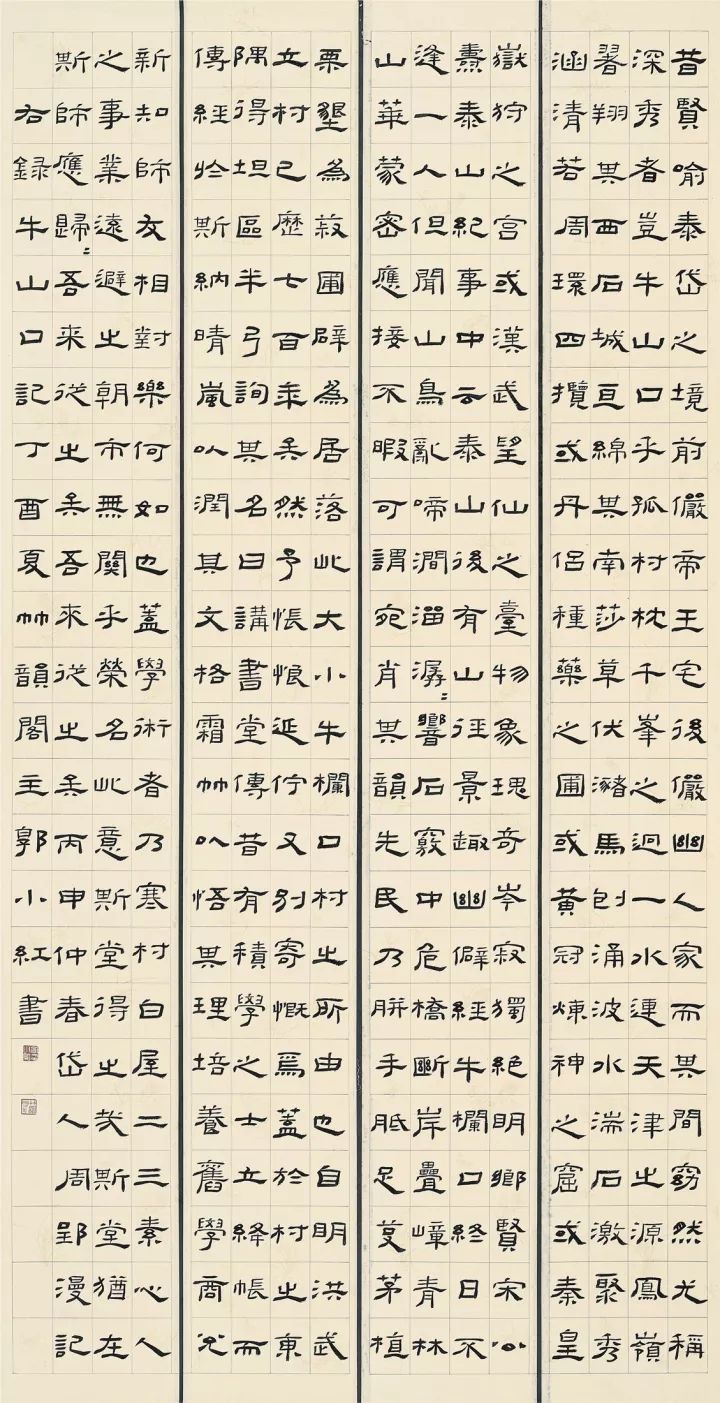 昔賢喻泰岱之境前儼帝王宅後儼幽人家而其間窈然尤稱
深秀者豈牛山口乎孤村枕千峯之迥一水連天津之源鳳嶺
翥翔其西石城亘綿其南莎草伏瀦馬刨涌波水湍石激聚秀
涵清若周環四攬或丹侶種藥之圃或黃冠煉神之窟或秦皇
嶽狩之宮或漢武望仙之臺物象瑰奇岑寂獨絕明鄉賢宋公
燾泰山紀事中云泰山後有山徑景趣幽僻經牛欄口終日不
逢一人但聞山鳥亂啼澗溜潺〻響石竅中危橋斷岸疊嶂青林
山華蒙密應接不暇可謂宛肖其韻先民乃胼手胝足芟茅植
栗墾為蔬圃辟為居落此大小牛欄口村之所由也自明洪武
立村已歷七百年矣然予悵恨延佇又別寄慨焉蓋於村之東
隅得坦區半弓詢其名曰講書堂傳昔有積學之士立絳帳而
傳經於斯納晴嵐以潤其文格霜竹以悟其理培養舊學商兌
新知師友相對樂何如也蓋學術者乃寒村白屋二三素心人
之事業遠避之朝市無關乎榮名此意斯堂得之哉斯堂猶在
斯師應歸〻吾來從之矣吾來從之矣丙申仲春岱人周郢漫記
右錄牛山口記丁酉夏竹韻閣主郭小紅書